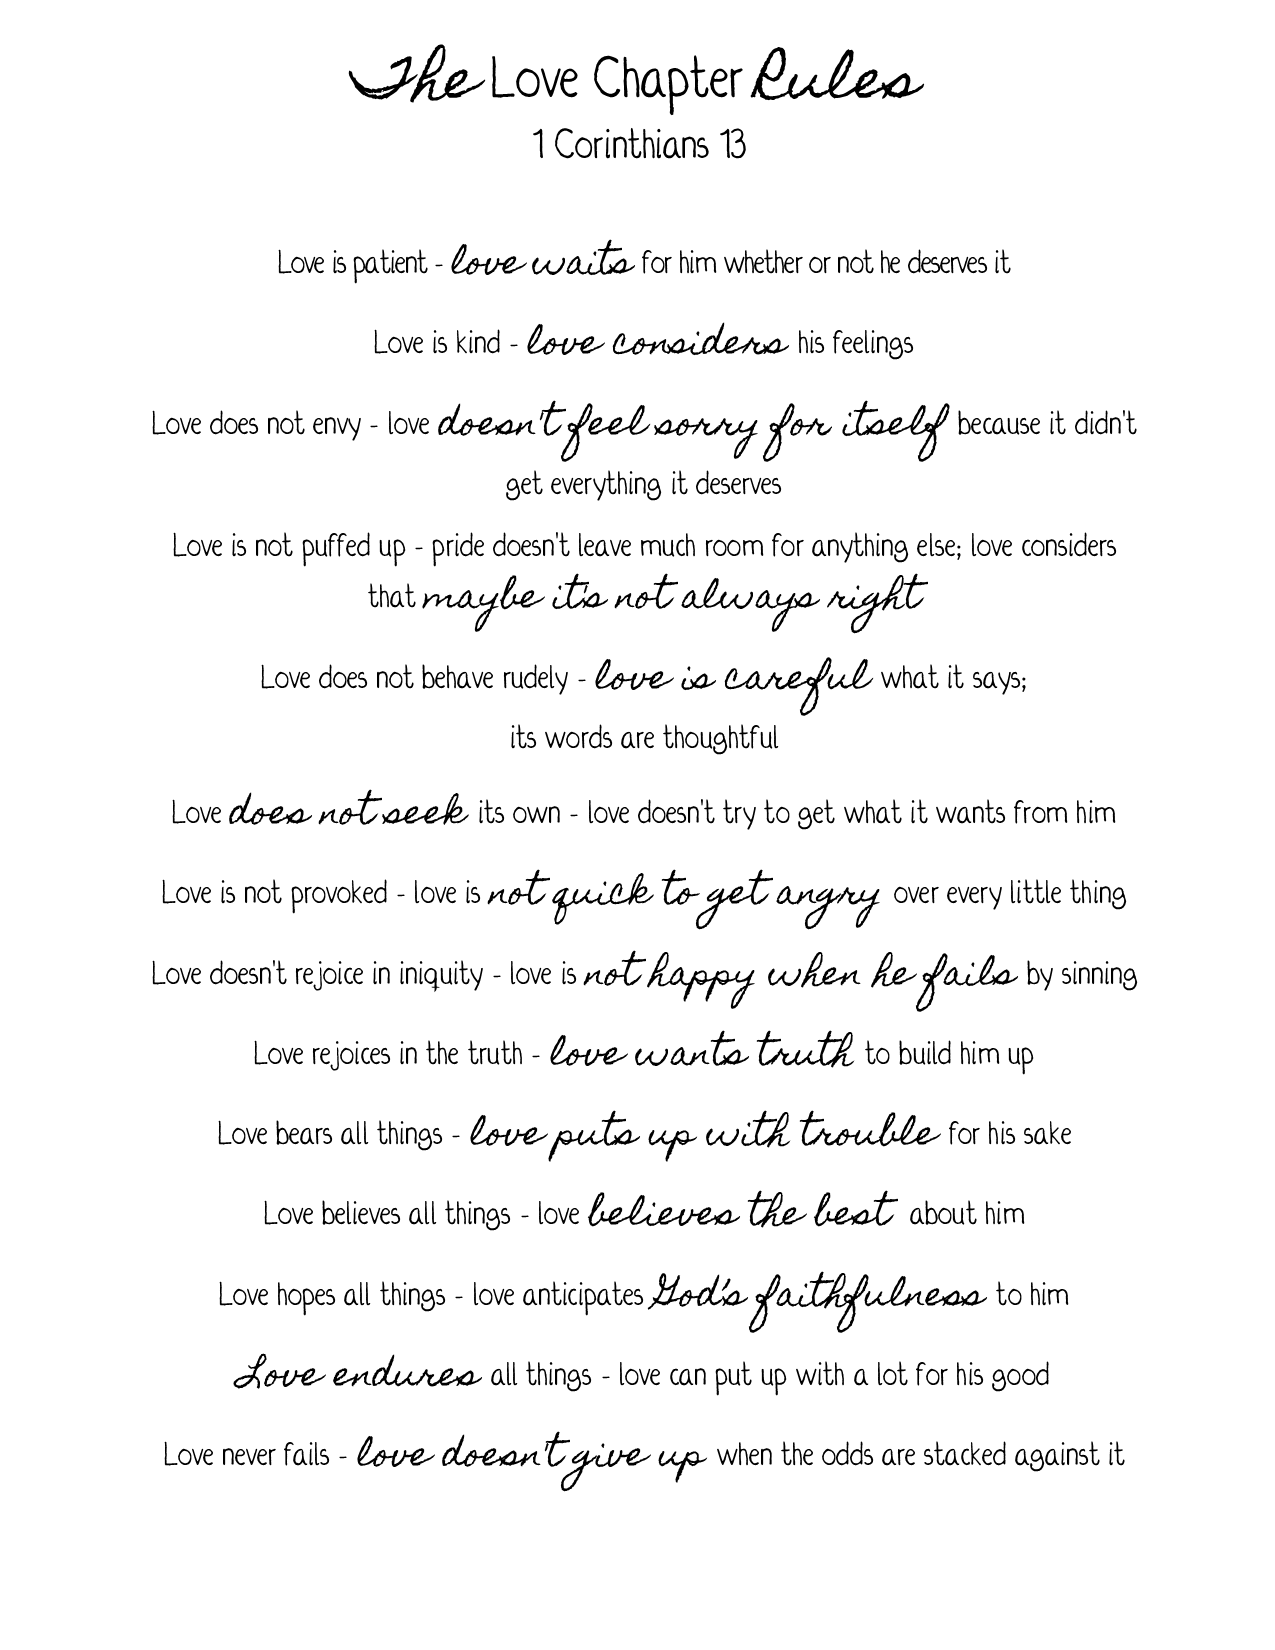 The Love Chapter Rules
1 Corinthians 13
Love is patient - love waits for him whether or not he deserves it
Love is kind - love considers his feelings
Love does not envy - love doesn't feel sorry for itself because it didn't
get everything it deserves
Love is not puffed up - pride doesn't leave much room for anything else; love considers
that maybe it's not always right
Love does not behave rudely - love is careful what it says;
its words are thoughtful
Love does not seek its own - love doesn't try to get what it wants from him
Love is not provoked - love is not quick to get angry over every little thing
Love doesn't rejoice in iniquity - love is not happy when he fails by sinning
Love rejoices in the truth - love wants truth to build him up
Love bears all things - love puts up with trouble for his sake
Love believes all things - love believes the best about him
Love hopes all things - love anticipates God's faithfulness to him
Love endures all things - love can put up with a lot for his good
Love never fails - love doesn't give up when the odds are stacked against it